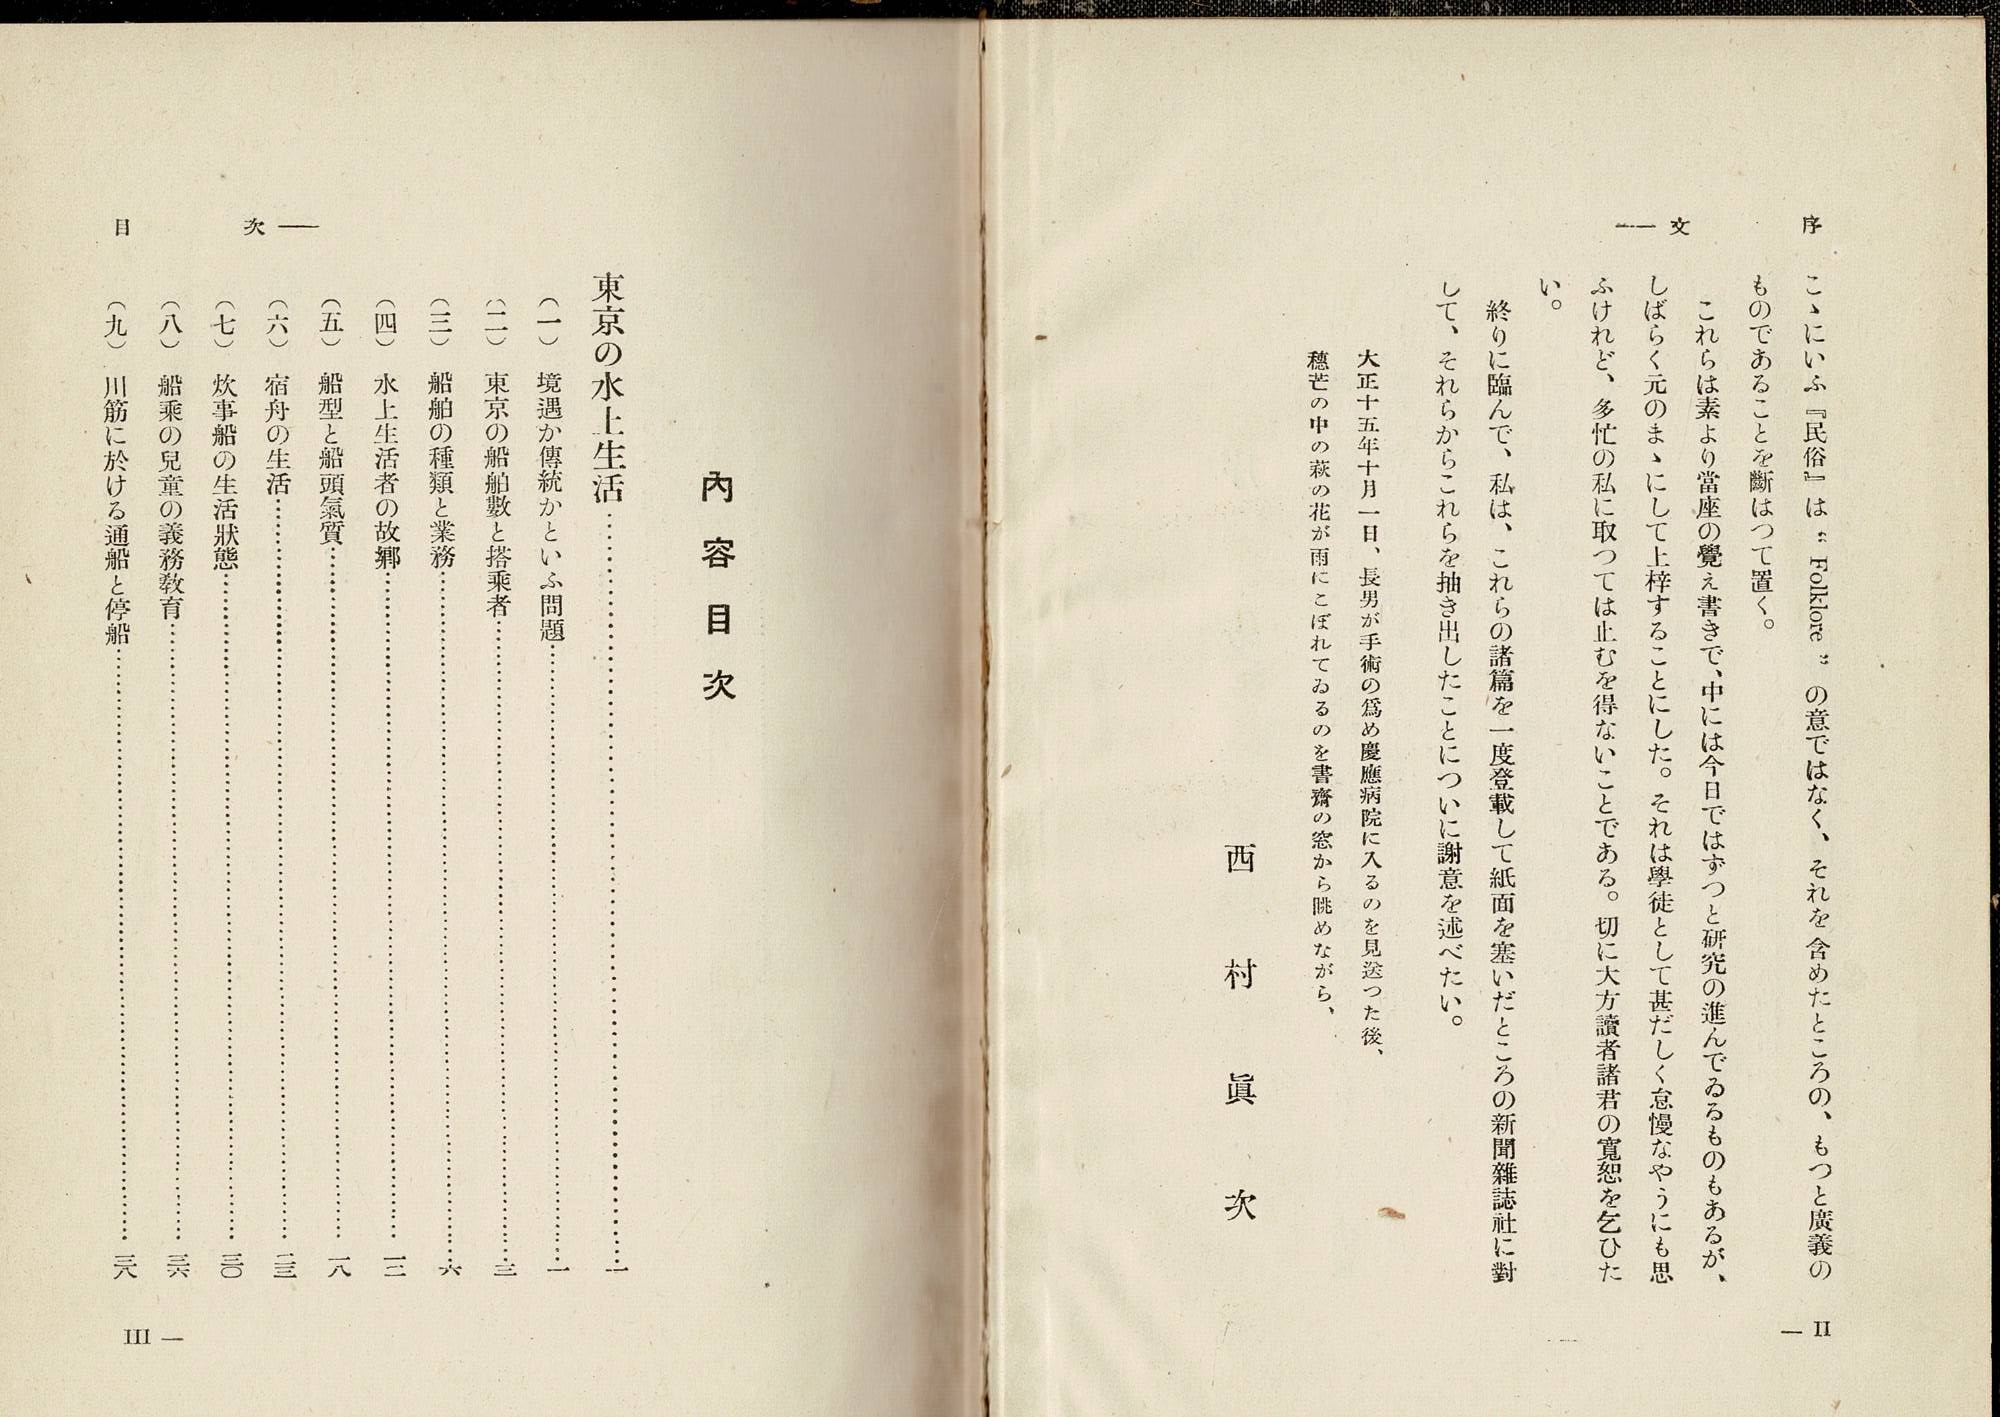 序　文 ―
こゝにいふ『民俗』は “ Folklore ” の意ではなく、それを含めたところの、もつと廣義の
ものであることを斷はつて置く。
これらは素より當座の覺え書きで、中には今日ではずつと硏究の進んでゐるものもあるが、
しばらく元のまゝにして上梓することにした。それは學徒として甚だしく怠慢なやうにも思
ふけれど、多忙の私に取つては止むを得ないことである。切に大方讀者諸君の寬恕を乞ひた
い。
終りに臨んで、私は、これらの諸篇を一度登載して紙面を塞いだところの新聞雜誌社に對
して、それらからこれらを抽き出したことについに謝意を述べたい。
大正十五年十月一日、長男が手術の爲め慶應病院に入るのを見送つた後、
穗芒の中の萩の花が雨にこぼれてゐるのを書齋の窓から眺めながら、
西村眞次
― II
內容目次
東京の水上生活……一
（一）境遇か傳統かといふ問題……一
（二）東京の船舶數と搭乘者……三
（三）船舶の種類と業務……六
（四）水上生活者の故鄕……一二
（五）船型と船頭氣質……一八
（六）宿舟の生活……二三
（七）炊事船の生活狀態……三〇
（八）船乘の兒童の義務敎育……三六
（九）川筋に於ける通船と停船……三八
目　次 ―
III ―